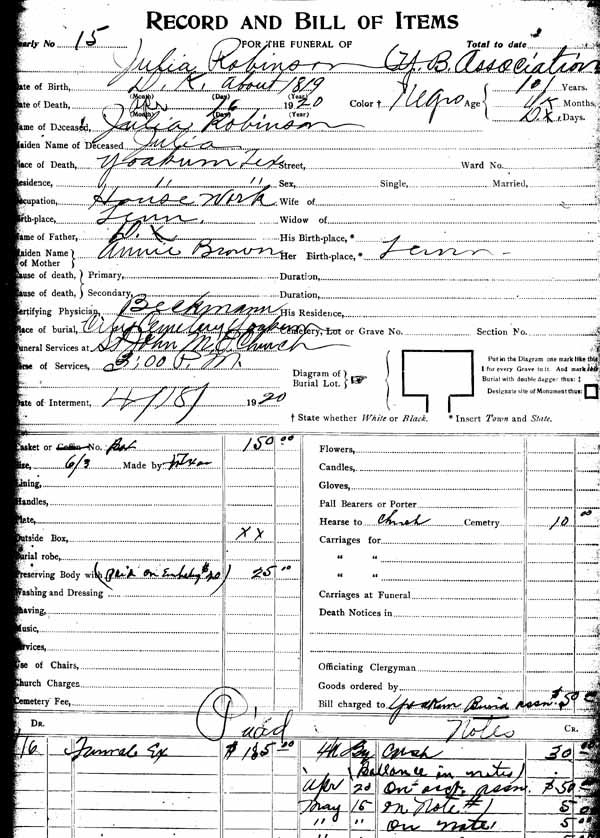 RECORD AND BILL OF ITEMS
early No 15 FOR THE FUNERAL OF Total to date
Julia Robinson Y. B. Association
ate of Birth, D. K. about 1819 101 Years.
(Month) (Day) (Year)
ate of Death, Apr 16 1920 Color † Negro Age Months,
(Month) (Day) (Year) D.K. Days.
ame of Deceased, Julia Robinson
aiden Name of Deceased Julia
lace of Death, Yoakum Tex Street, Ward No.
esidence, " " Sex, Single, Married,
ccupation, House Work Wife of
irth-place, Tenn. Widow of
ame of Father, D. K His Birth-place, *
aiden Name of Mother Annie Brown Her Birth-place, * Tenn
ause of death, Primary, Duration,
ause of death, Secondary, Duration,
ertifying Physician, Beckmann His Residence,
lace of burial, City Cemetery Yoakum Cemetery, Lot or Grave No. Section No.
uneral Services at St John M. E. Church
me of Services, 3:00 P. M.
Diagram of Burial Lot.
Put in the Diagram one mark like this
‡ for every Grave to it. And mark
Burial with double dagger thus: ‡
Designate site of Monument thus:
ate of Interment, 4/18/ 1920
† State whether White or Black. * Insert Town and State.
asket or Coffin No. 150 00
ize, 6/3 Made by Texas
ining,
andles,
late,
utside Box, x x
urial robe,
reserving Body with (paid on Embalg $20) 25 00
ashing and Dressing
having,
usic,
ervices,
se of Chairs,
hurch Charges
emetery Fee,
Flowers,
Candles,
Gloves,
Pall Bearers or Porter
Hearse to Church Cemetry 10 00
Carriages for
" "
" "
Carriages at Funeral
Death Notices in
Officiating Clergyman
Goods ordered by
Bill charged to Yoakum Burial assn. $50
DR. Paid Notes CR.
16 Funerale Ex $ 185 00 By Cash 30 00
(Ballance in notes)
Apr 20 On acct. assn. $50
May 15 on Note #1 5
" " on note 5